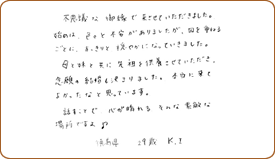 不思議な御縁で来させていただきました。
始めは、色々と不安がありましたが、回を重ねる
ごとに、すっきりと穏やかになっていきました。
母と妹と共に先祖を供養させていただき、
念願の結婚も決まりました。本当に来て
よかったなと思っています。
話すことで心が晴れる、そんな素敵な
場所ですよ
29歳 K.I